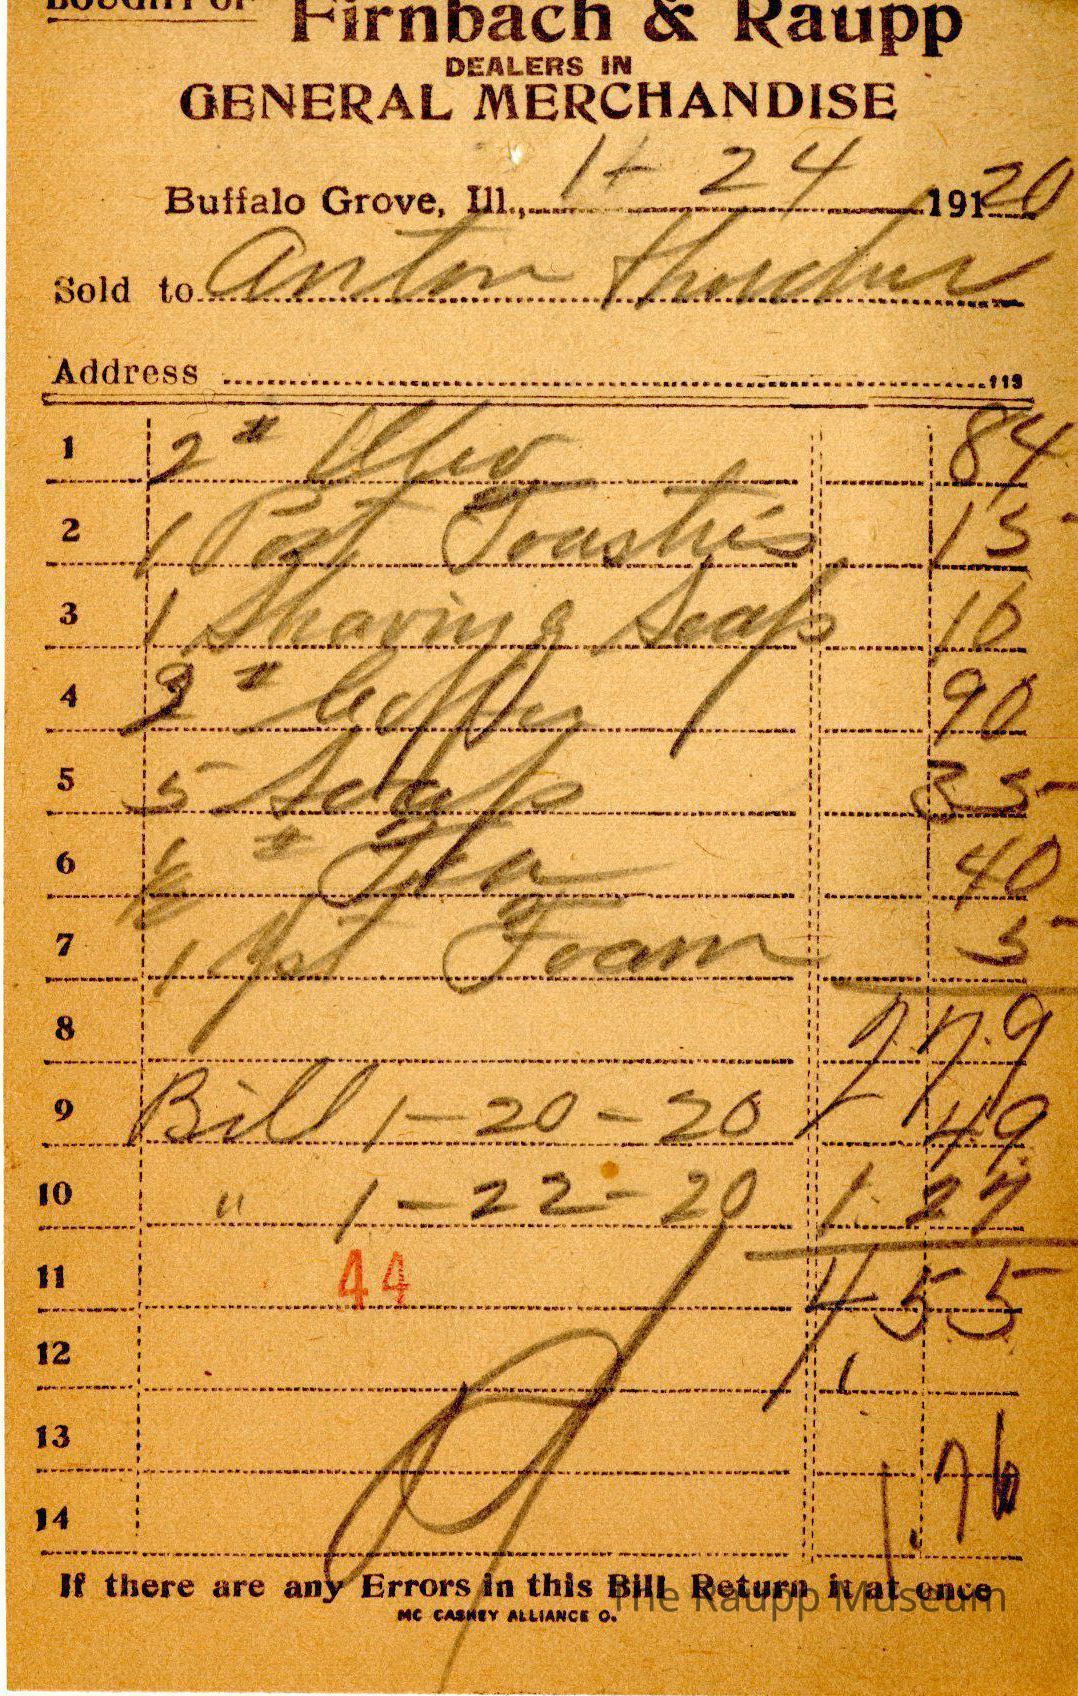 BOUGHT OF
Firnbach & Raupp
DEALERS IN
GENERAL MERCHANDISE
Buffalo Grove, Ill., 1-24 191 20
Sold to Anton
Address 113
1 2 # Oleo 84
2 1 Post Toasties 15
3 1 Shaving Soap 10
4 2 # Coffee 90
5 5 Soap 35
6 1/2 # Tea 40
7 1 Yst Foam 5
8 2.79
9 Bill 1-20-20 49
10 " 1-22-20 1.27
11 44 4.55
12
13
14 1.76
If there are any Errors in this Bill Return it at once
MC CASKEY ALLIANCE O.
The Raupp Museum